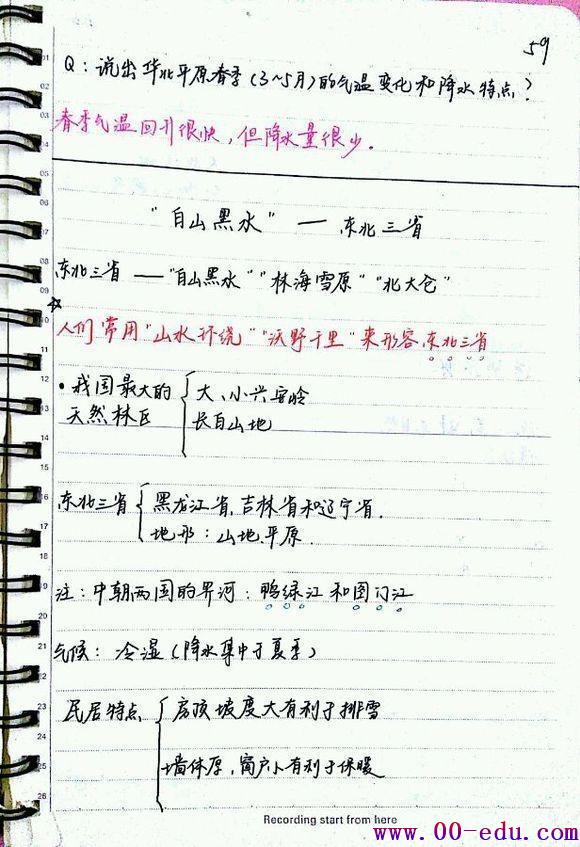 59
Q：说出华北平原春季(3~5月)的气温变化和降水特点？
春季气温回升很快，但降水量很少.
"白山黑水" — 东北三省
东北三省 —"白山黑水" "林海雪原" "北大仓"
☆
人们常用"山水环绕" "沃野千里"来形容东北三省
• 我国最大的天然林区 { 大、小兴安岭
长白山地
东北三省 { 黑龙江省,吉林省和辽宁省.
地形：山地.平原.
注：中朝两国的界河：鸭绿江和图们江
气候：冷湿(降水集中于夏季)
民居特点 { 房顶坡度大有利于排雪
墙体厚,窗户小有利于保暖
Recording start from here
www.00-edu.com